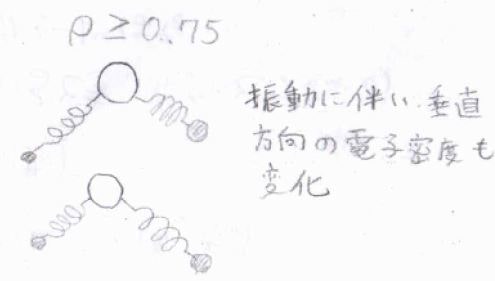 ρ ≥ 0.75
振動に伴い、垂直
方向の電子密度も
変化